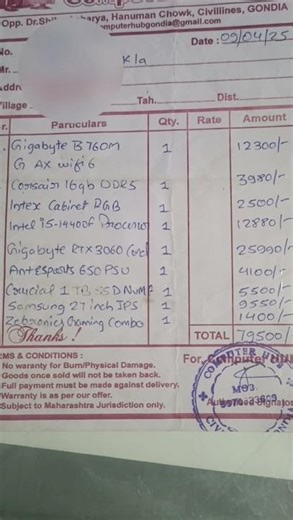 Opp. Dr.Sh charya, Hanuman Chowk, Civillines, GONDIA
omputerhubgondia@gmail.com
No. Date : 09/04/25
Mr. Kla
Addr
Village Tah. Dist.
r. Particulars Qty. Rate Amount
Gigabyte B760M 1 12300/-
G AX wifi 6
Corsair 16gb DDR5 1 3980/-
Intex Cabinet RGB 1 2500/-
Intel i5-14400f Processor 1 12880/-
Gigabyte RTX 3060 1 25990/-
Ant Esports 650 PSU 1 4100/-
Crucial 1 TB SSD NVME 1 5500/-
Samsung 27 inch IPS 1 9550/-
Zebronics Gaming Combo 1 1400/-
Thanks !
TOTAL 79500/-
RMS & CONDITIONS : For, Computer HUB
No warranty for Burn/Physical Damage.
Goods once sold will not be taken back.
Full payment must be made against delivery.
Warranty is as per our offer.
Subject to Maharashtra Jurisdiction only.
COMPUTER HUB
MO3.
Authorised Signatory